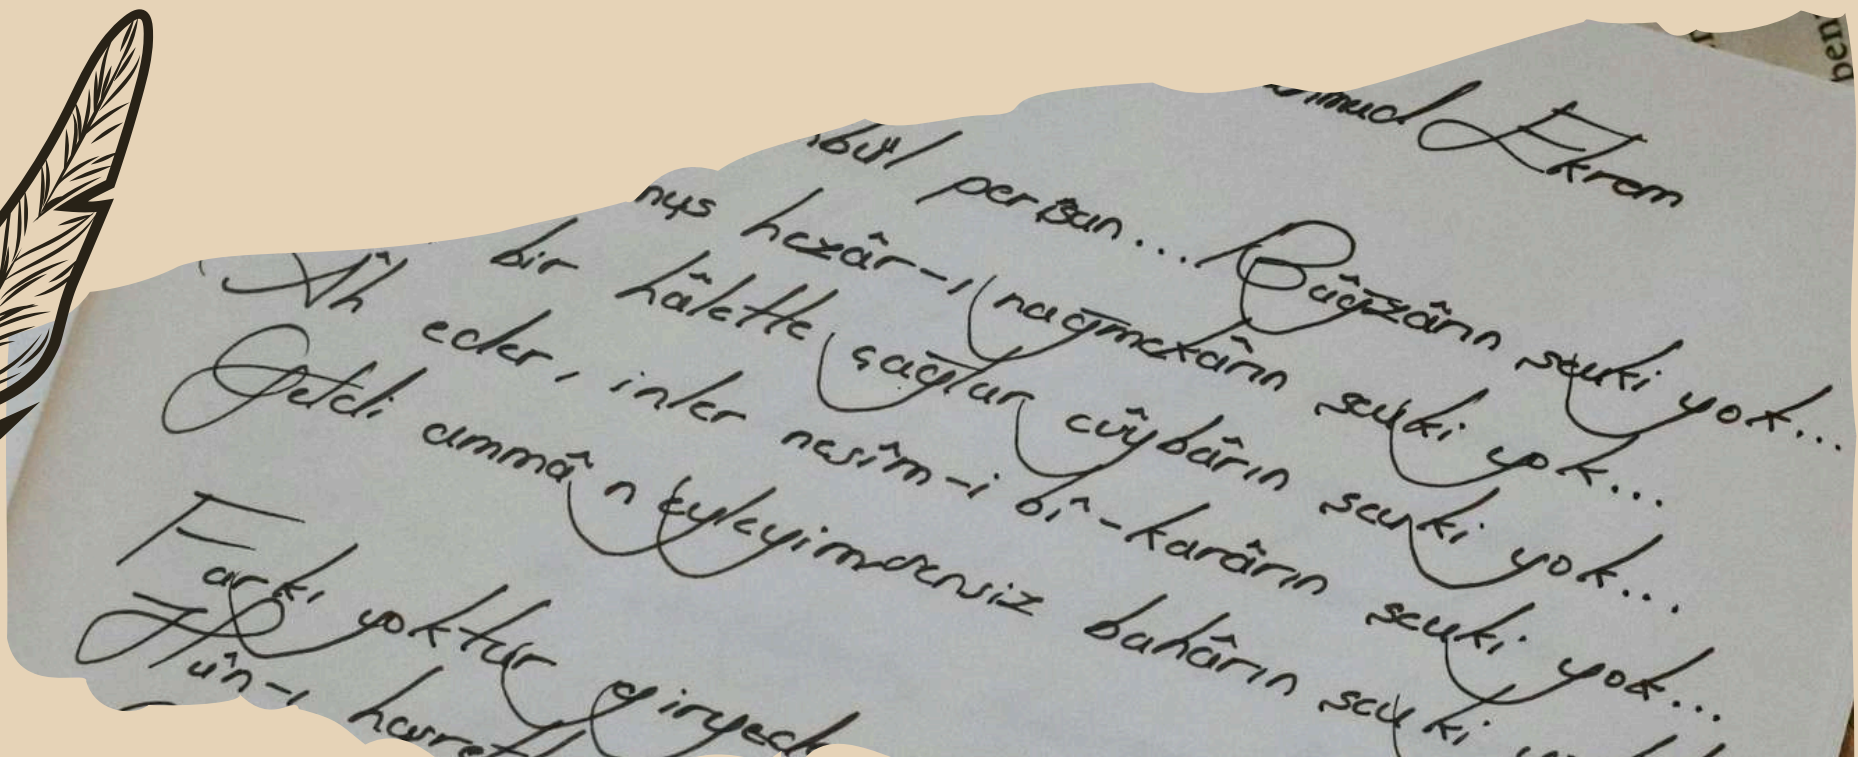 Ekrem
perîşan... Bâğzârın şevki yok...
hezâr-ı nağmekârın şevki yok...
bir hâlette çağlar cûybârın şevki yok...
Âh eder, inler nesîm-i bî-karârın şevki yok...
Geldi ammâ n eyleyim sensiz bahârın şevki
Farkı yoktur
Hûn-ı